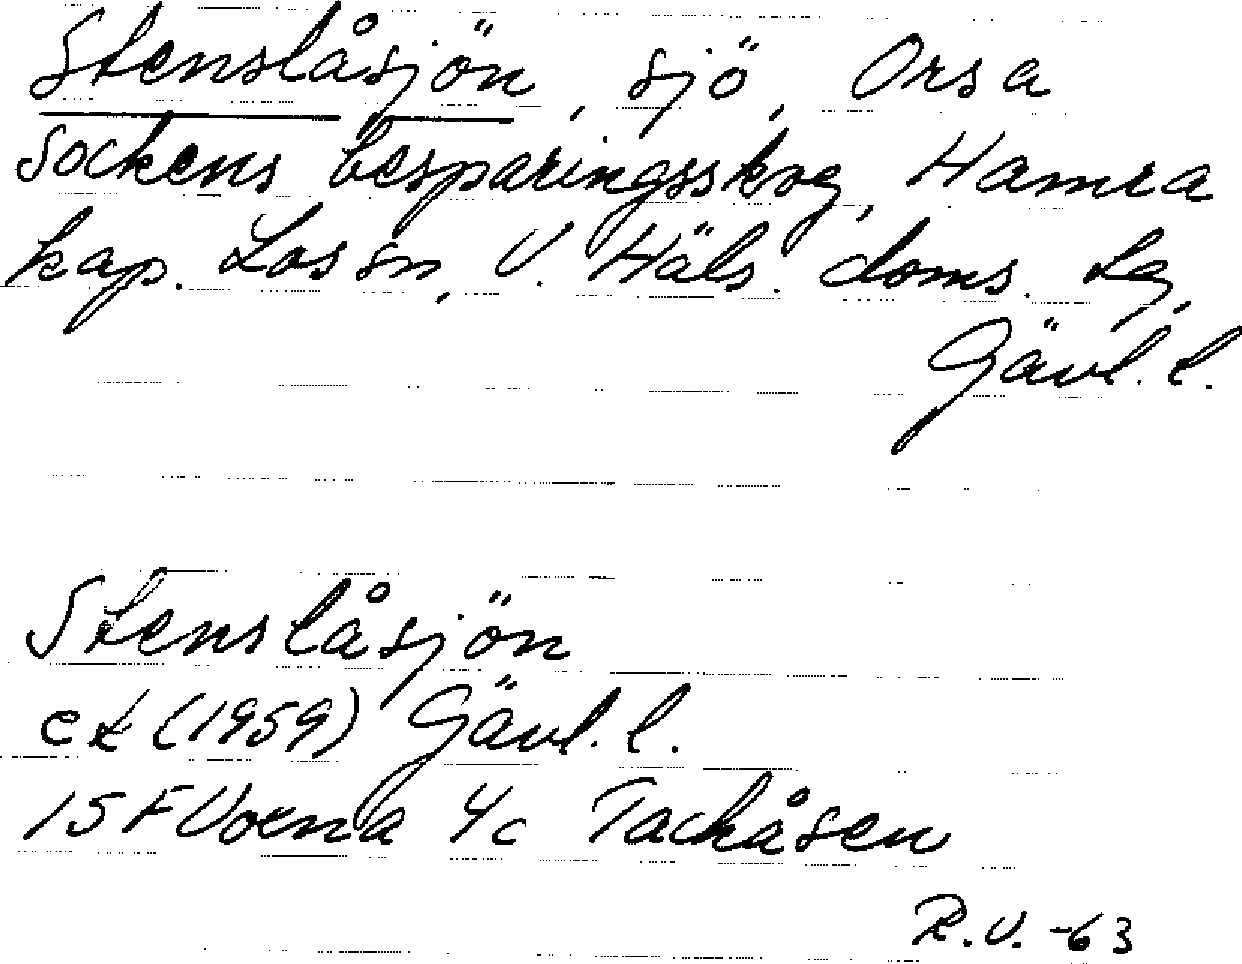 Stenslåsjön, sjö, Orsa
sockens besparingsskog, Hamra
kap. Los sn, V. Häls. doms. lg,
Gävl. l.
Stenslåsjön
ek (1959) Gävl. l.
15 F Voxna 4c Tackåsen
R.V. -63